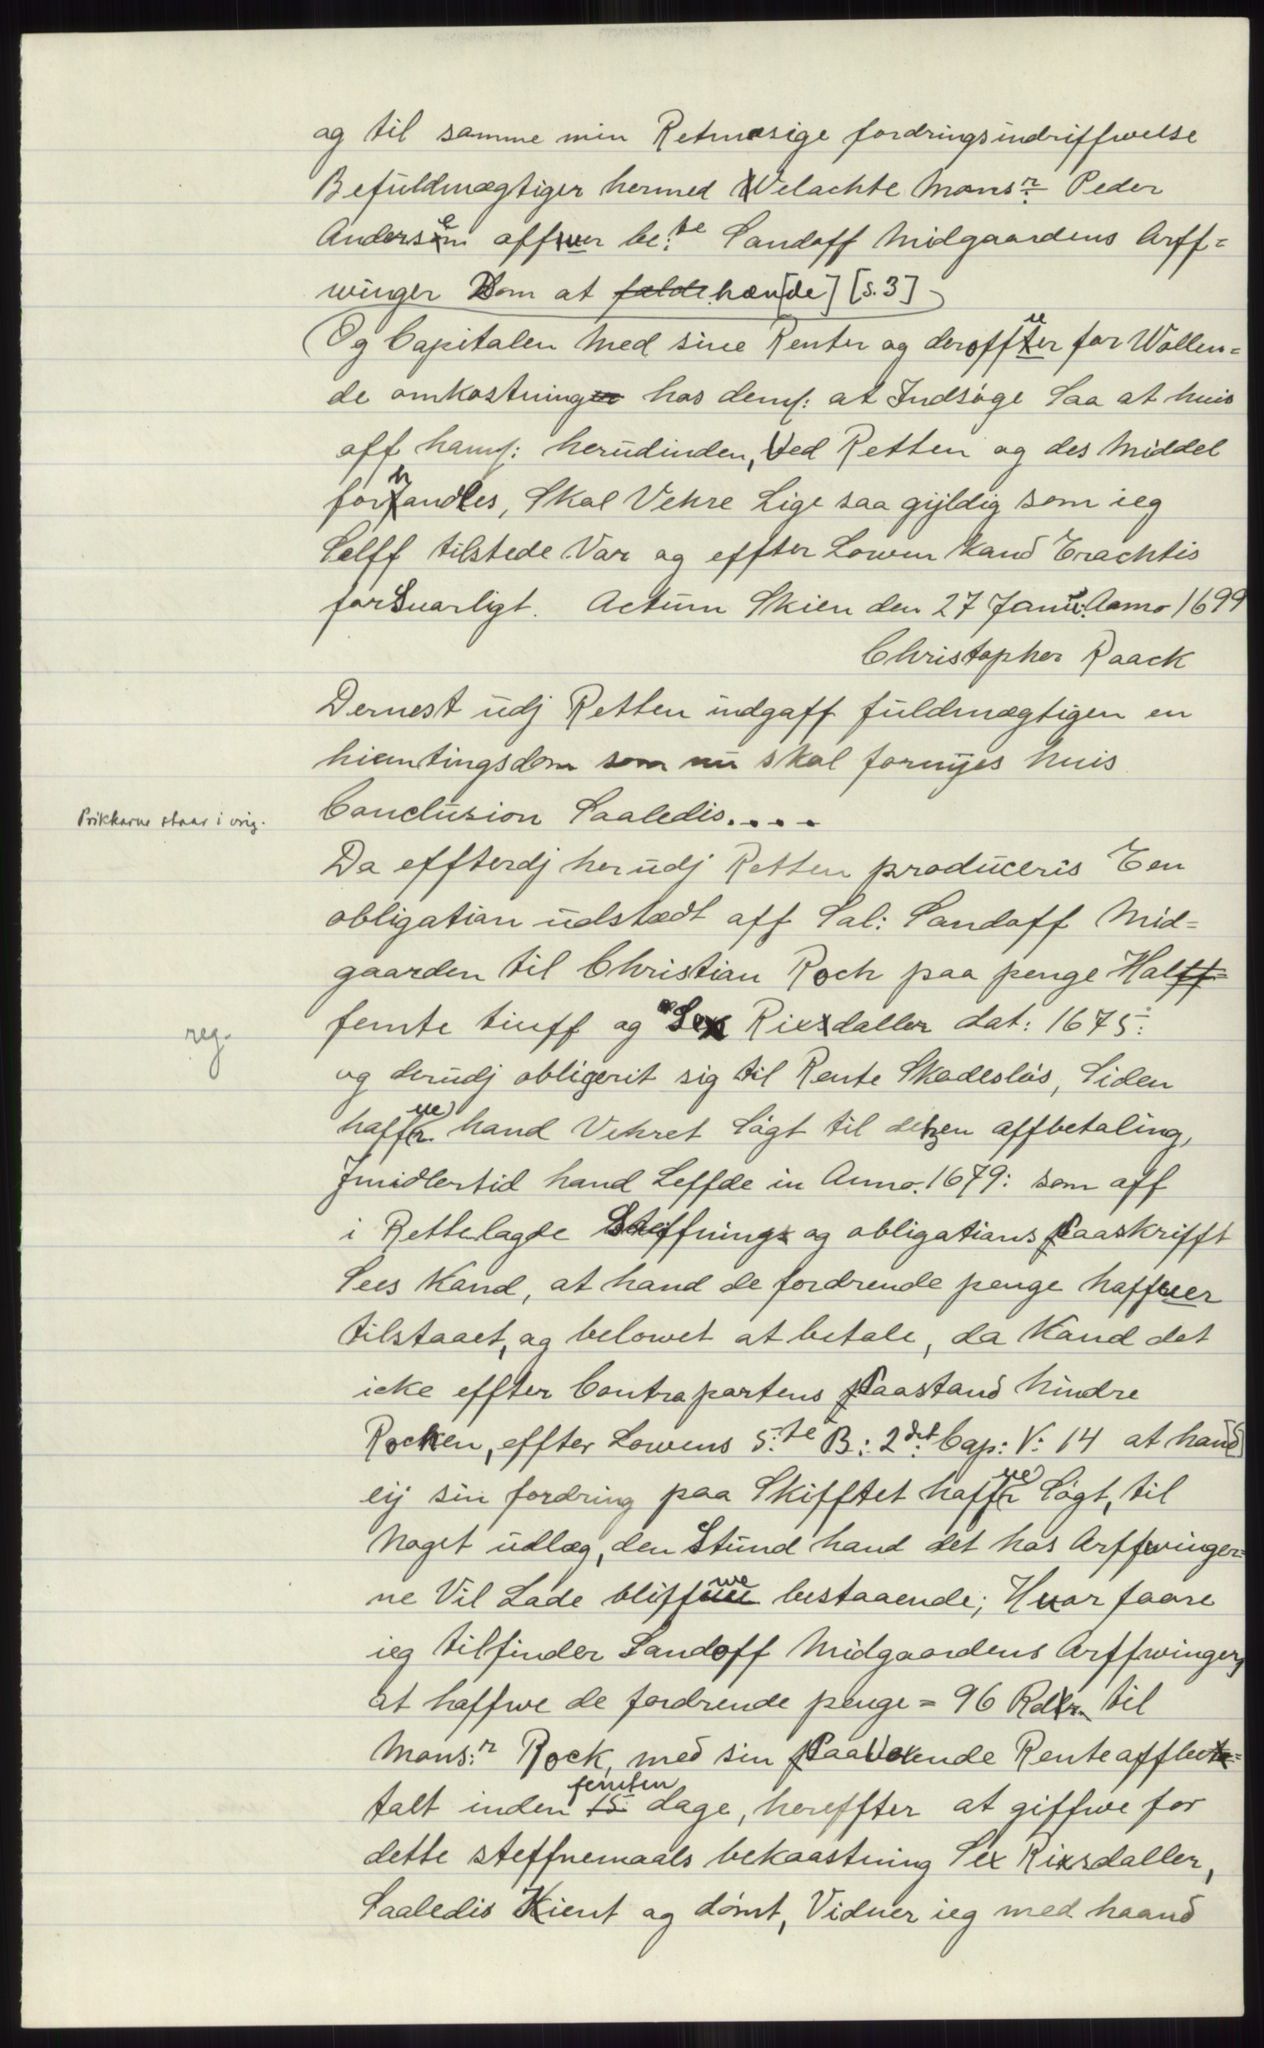 og til samme min Retmæsige fordringsindriffwelse
Befuldmægtiger hermed Velachte Monsr. Peder
Andersen offwer be:te Sandoff Midgaardens Arff=
winger Dom at hæn[de] [s. 3]
Og Capitalen Med sine Renter og deroffuer for Wollen=
de omkostning hos demf: at Indsøge Saa at huis
aff hamf: herudinden, Ved Retten og des Middel
forhandles, Skal Vehre Lige saa gyldig som ieg
Selff tilstede Var og effter Lowen kand Erachtis
forSuarligt. Actum Skien den 27 Janu: Anno 1699
Christopher Raack
Dernest udj Retten indgaff fuldmægtigen en
hiemtingsdom som nu skal fornyes huis
Prikkarne staar i orig.
Conclusion Saaledis....
Da effterdj herudj Retten produceris Een
obligation udstædt aff Sal: Sandoff Mid=
gaarden til Christian Rock paa penge Halff=
reg.
femte tiuff og Sex Rixdaller dat: 1675:
og derudj obligerit sig til Rente Skadesløs, Siden
haffue hand Vehret Søgt til detzen affbetaling,
Imidlertid hand Leffde in Anno. 1679: som aff
i Rettelagde Steffning og obligations Paaskrifft
Sees Kand, at hand de fordrende penge haffuer
tilstaaet, og belowet at betale, da Kand det
icke effter Contrapartens Paastand hindre
Rocken, effter Lowens 5:te B: 2det Cap: V: 14 at hand
eij sin fordring paa Skifftet haffue Søgt, til
Noget udlæg, den Stund hand det hos Arffwinger=
ne Vil Lade bliffwe bestaaende; Huor faare
ieg tilfinder Sandoff Midgaardens Arffwinger,
at haffwe de fordrende penge = 96 Rdlr. til
Mons:r Rock, med sin Paa Vokende Rente affbe=
talt inden femten dage, hereffter at giffwe for
dette steffnemaals bekaastning Sex Rixdaller,
Saaledis Kient og dømt, Vidner ieg med haand